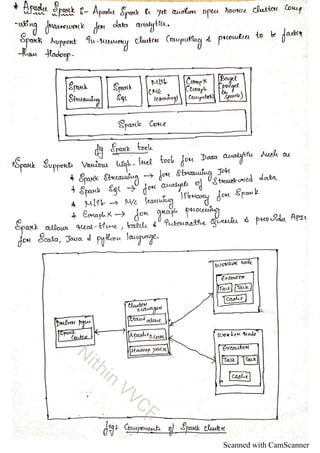 * Apache Spark :- Apache Spark is yet another open source cluster comp
-uting framework for data analytics.
Spark support In-memory cluster computing & promises to be faster
than Hadoop.
Spark Streaming
Spark Sql
Mlib (M/c learning)
Graph X (Graph Computatn)
Spark Core
fig Spark tools
Spark Supports Various high-level tools for Data analytics such as
* Spark Streaming → for Streaming Job
* Spark Sql → for analysis of Structured data
* Mlib → M/c learning library for Spark
* Graph X → for graph processing
Spark allows real-time, batch & Interactive Queries & provides APIs
for Scala, Java & python language.
Driver pgm
Spark Context
Cluster Manager
Stand alone
Apache Mesos
Hadoop YARN
Worker node
Executor
Task Task
Cache
Worker node
Executor
Task Task
Cache
Nithin VVCE
fig: Components of Spark cluster
Scanned with CamScanner